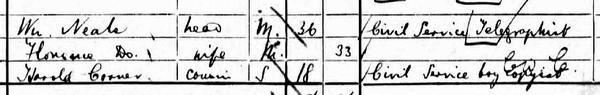 Wm. Neale head M. 36 Civil Service Telegraphist
Florence Do. wife M. 33
Harold Corner cousin S 18 Civil Service boy Copyist